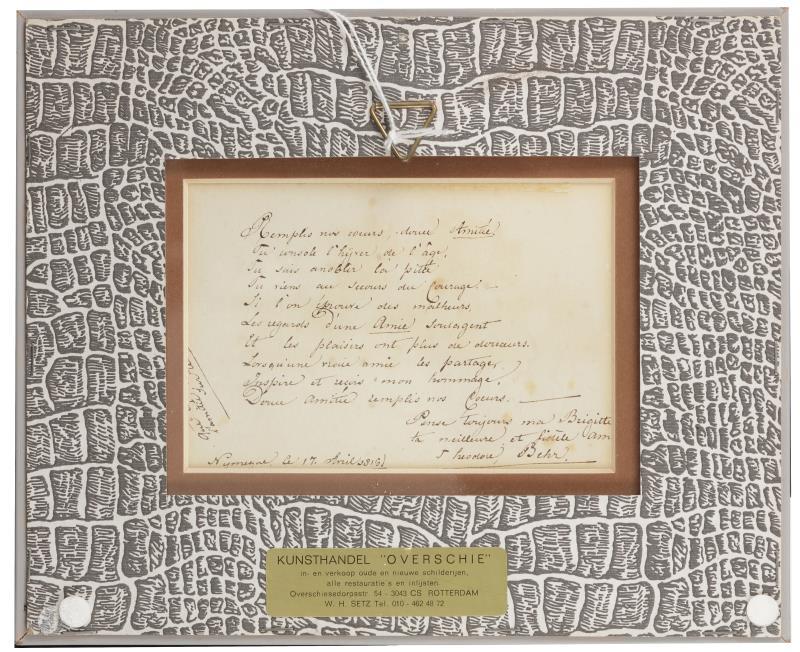 Remplis nos coeurs, douce Amitié
Tu console l'hÿver de l'âge,
Tu sais anoblir la pitié
Tu viens au Secours du Courage:
Si l'on éprouve des malheurs,
Les regards d'une Amie soulagent
Et les plaisirs ont plus de douceurs.
Lorsqu'une vraie amie les partage,
Inspire et reçois mon hommage,
Douce Amitié remplis nos Coeurs.
Pense toujours ma Brigitte
ta meilleure et fidèle am
Theodore, Behr.
Nymegue, le 17. Avril
KUNSTHANDEL "OVERSCHIE"
in- en verkoop oude en nieuwe schilderijen,
alle restauratie's en inlijsten.
Overschiesedorpsstr. 54 - 3043 CS ROTTERDAM
W. H. SETZ Tel. 010 - 462 48 72